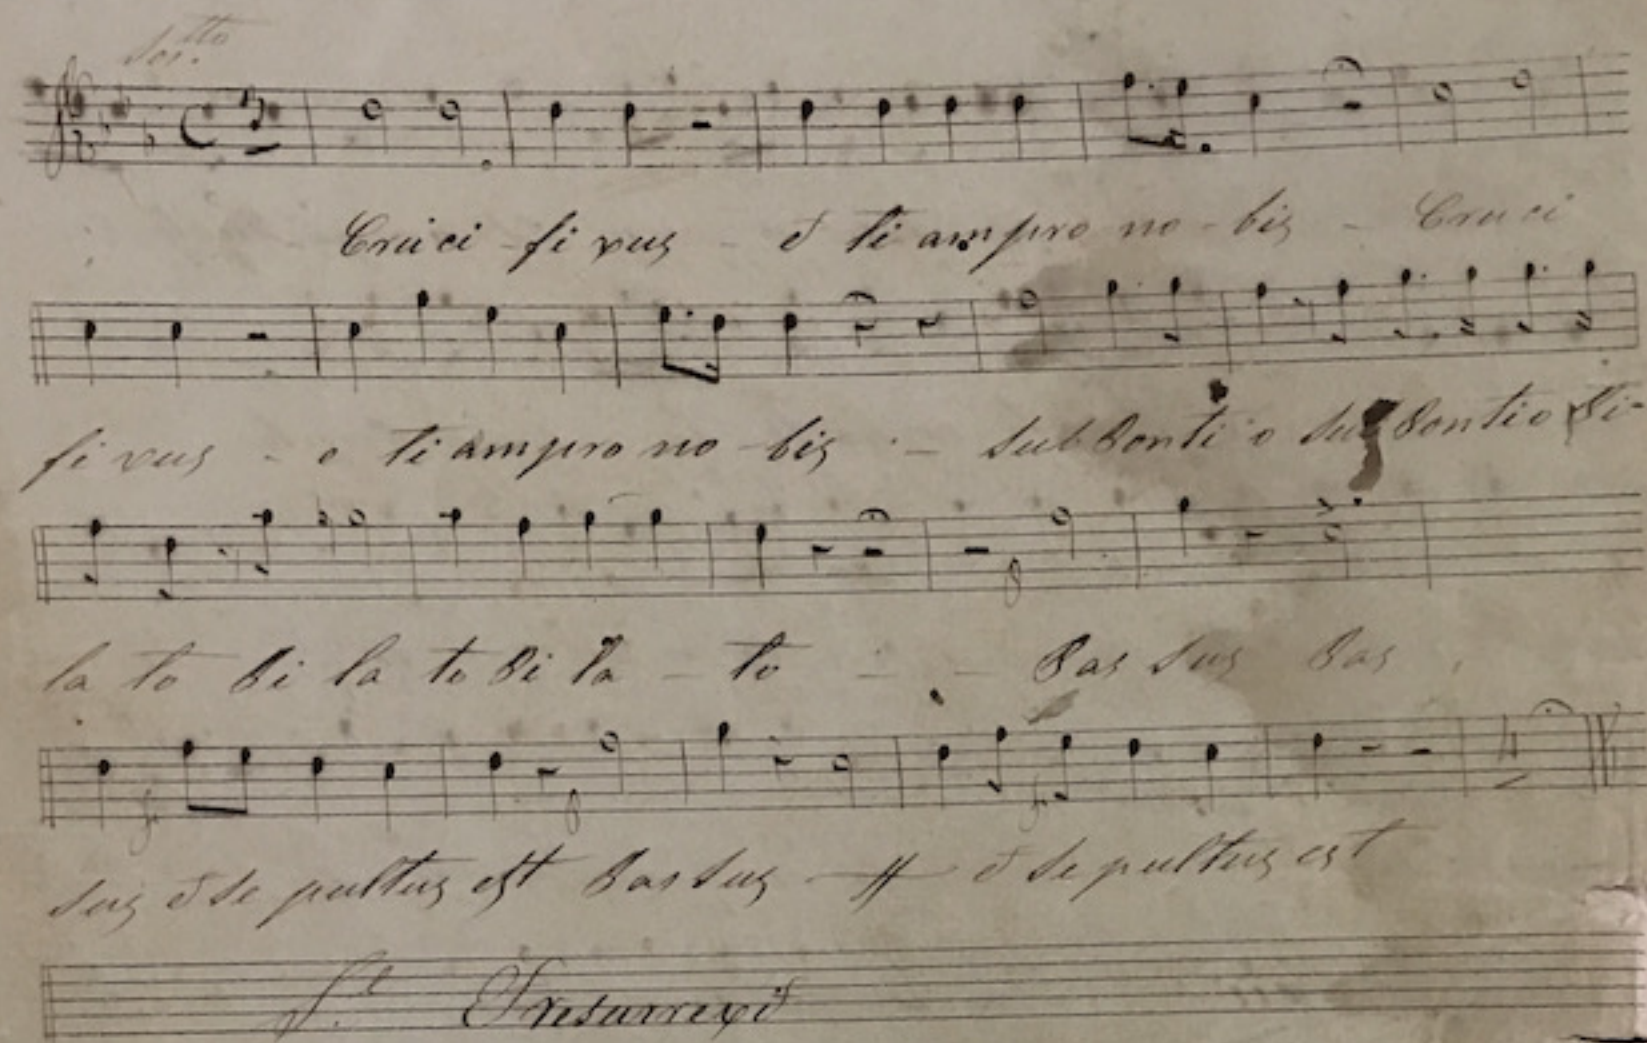 Sos.tto
Cruci - fi xus - et ti am pro no - bis - Cruci
fi xus - e ti am pro no - bis - sub Ponti o sub Pontio Pi-
la to Pi la to Pi la - to - - Pas sus Pas
sus et se pultus est Passus - # et se pultus est
Et resurrexit